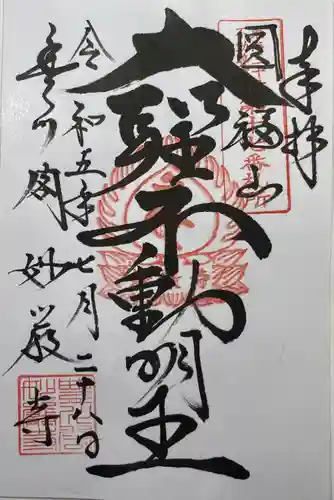 奉拝
圓福山
大聖不動明王
令和五年七月二十八日
豊川閣 妙嚴寺